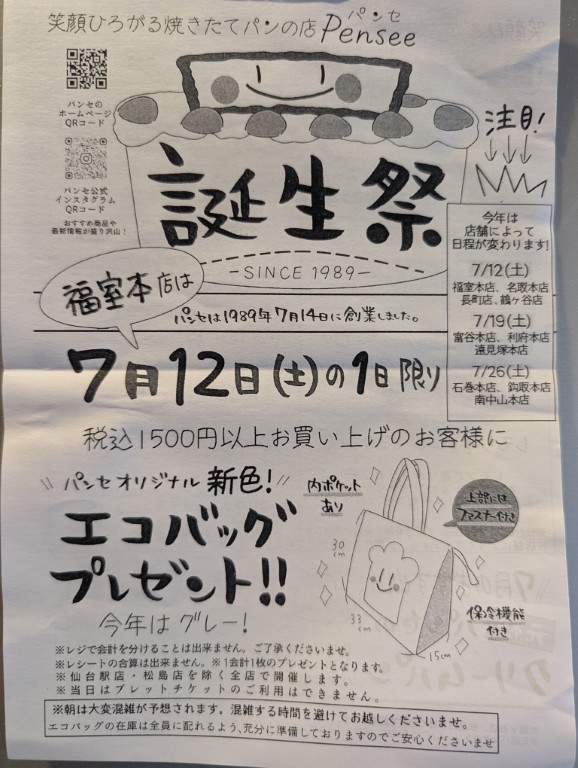 笑顔ひろがる焼きたてパンの店 Pensee
パンセ
パンセの
ホームページ
QRコード
パンセ公式
インスタグラム
QRコード
おすすめ商品や
最新情報が盛り沢山!
誕生祭
-SINCE 1989-
注目!
今年は
店舗によって
日程が変わります!
7/12(土)
福室本店、名取本店
長町店、鶴ヶ谷店
7/19(土)
富谷本店、利府本店
遠見塚本店
7/26(土)
石巻本店、鈎取本店
南中山本店
福室本店は
パンセは1989年7月14日に創業しました。
7月12日(土)の1日限り
税込1500円以上お買い上げのお客様に
パンセオリジナル 新色!
エコバッグ
プレゼント!!
今年はグレー!
内ポケット
あり
上部には
ファスナー付き
30cm
33cm
15cm
保冷機能
付き
※レジで会計を分けることは出来ません。ご了承くださいませ。
※レシートの合算は出来ません。※1会計1枚のプレゼントとなります。
※仙台駅店・松島店を除く全店で開催します。
※当日はブレットチケットのご利用はできません。
※朝は大変混雑が予想されます。混雑する時間を避けてお越しくださいませ。
エコバッグの在庫は全員に配れるよう、充分に準備しておりますのでご安心くださいませ